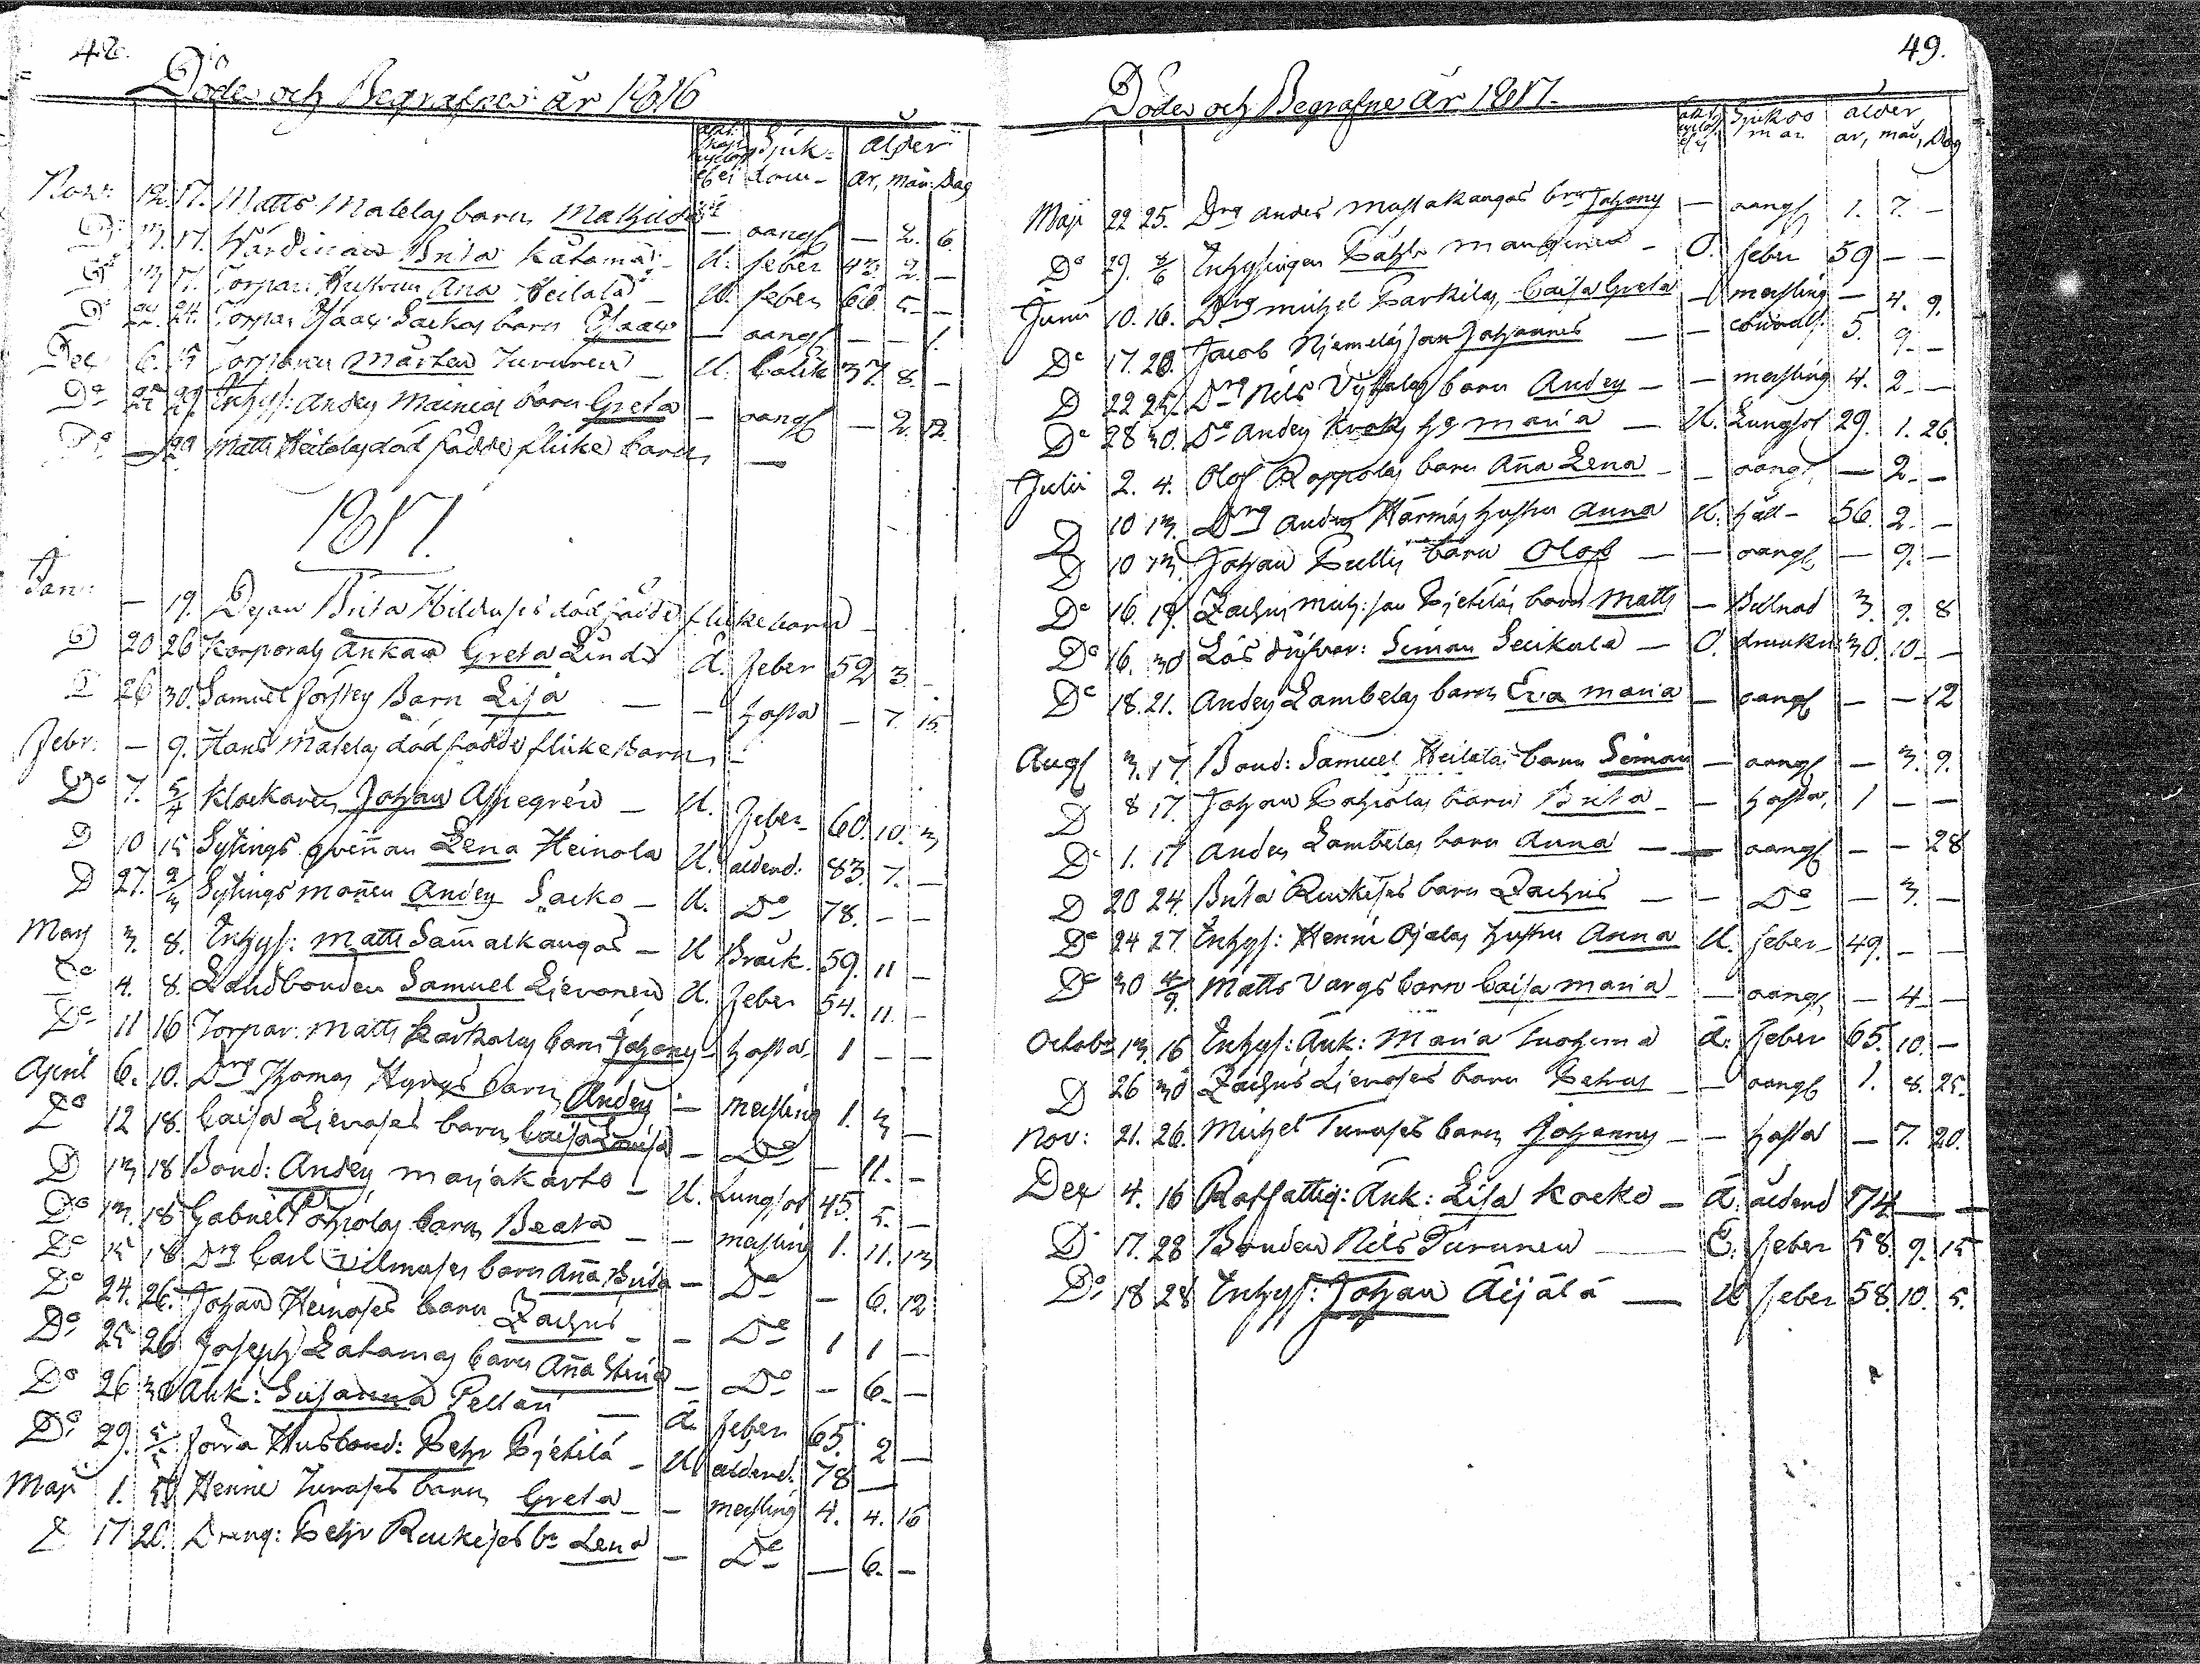 48.
Döde och Begrafne år 1816
Sjuk-
dom
ålder
år, mån: Dag
Nov: 12. 17. Matts Matelas barn — aangst — 2. 6
Do 13. 17. Brita Katama U. feber 43 2. —
Do 13 17. Torpar: Hustrun Ana Heilala U. feber 66. 5. —
Do 24. Torpar Isaac Sackos barn Isaac — aangst — — 1.
Dec 6. 15 Torparen Mårten Turunen U. Colik 37. 8. —
Do 29 Inhys: Anders Mainios barn Greta — aangst — 2. 12.
Do — 29 Matts Heilalas död födde flicke barn —
1817.
Jan: — 19. Pigan Brita död födde flickebarn
D 20 26 Korporals Änkan Greta Lind Ä. feber 52 3. —
D 26 30. Samuel Forsstes Barn Lisa — hosta — 7. 15
Febr: — 9. Hans Matelas död födde flicke Barn —
Do 7. 5/4 Klockaren Johan Aspegrén — U. feber 60. 10. 3
D 10 15 Sytings qvinnan Lena Heinola U. ålderd: 83. 7. —
D 27. 2/3 Sytings mannen Anders Sacko — U. Do 78. — —
Mars 3. 8. Inhys: Matts Sammalkangas — U Bråck. 59. 11 —
Do 4. 8. Landbonden Samuel Lievonen U. feber 54. 11. —
Do 11 16 Torpar: Matts Karkolas barn Johans — hosta 1 — —
April 6. 10. Drng Thomas Hyrys barn Anders — messling 1. 3 —
Do 12 18. Caisa Lievoses barn Caisa Lovisa — Do — 11. —
D 13 18 Bond: Anders Marjakorho — U. Lungsot 45. 5. —
Do 13. 18 Gabriel Pohjolas barn Beata — messling 1. 11. 13
Do 15 18 Drng Carl barn Anna Brita — Do — 6. 12
Do 24. 26. Johan Heinoses barn Zachris — Do 1 1 —
Do 25 26 Joseph Latomas barn Anna Stina — Do — 6. —
Do 26 30 Änk: Susanna Pellari — Ä. feber 65. 2 —
Do 29. Forra Husbond: Pehr Pjetilä — U ålderd. 78 —
Maji 1. Henric Turoses barn Greta — messling 4. 4. 15
D 17 26. Dreng: Pehr Ruckoses bn Lena — Do — 6. —
49.
Döde och Begrafne År 1817.
Sjukdo
mar
ålder
år, mån, Dag
Maji 22 25. Drng Anders Mustakangas brn Johans — aangst 1. 7. —
Do 29. 8/6 Inhysingen Pehr Manginen — O. feber 59 — —
Junii 10. 16. Drng Michel Parkilas Caisa Greta — messling — 4. 9.
Do 17. 20. Jacob Niemeläs son Johannes — — 5. 9. —
D 22 25. Drng Nils barn Anders — — messling 4. 2 —
Do 28 30. Do Anders Kroks hu Maria — U. Lungsot 29. 1. 26.
Julii 2. 4. Olof Roppolas barn Anna Lena — — aangst — 2. —
D 10 13. Drng Anders Härmäs hustru Anna U. håll — 56. 2. —
D 10 13. Johan Pullis barn Olof — — aangst — 9. —
Do 16. 19. Zachris Mich: son Pjetiläs barn Matts — Bulnad 3. 9. 8
Do 16. 30 Lösdrifvar: Simon Seikula — O. drunknad 30. 10 —
Do 18. 21. Anders Lambelas barn Eva Maria — aangst — — 12
Augst 3. 17. Bond: Samuel Heilalas barn Simon — aangst — 3. 9.
D 8 17. Johan Pohjolas barn Brita — — hosta, 1 — —
Do 1. 17 Anders Lambelas barn Anna — — aangst — — 28
D 20 24. Brita Ruckoses barn Zachris — — Do — 3. —
Do 24 27. Inhys: Henric Ojalas hustru Anna U. feber — 49. — —
Do 30 4/9. Matts Vargs barn Caisa Maria — — aangst — 4 —
Octobr 13. 16 Inhys: Änk: Maria Tuohima Ä. feber 65. 10. —
D 26 30 Zachris Lievoses barn Petrus — — aangst 1. 8. 25.
Nov: 21. 26. Michel Turoses barn Johannes — — hosta — 7. 20.
Dec 4. 16 Rotfattig: Änk: Lisa Kocko — Ä. ålderd 74 — —
D 17. 28 Bonden Nils Turunen — E. feber 58. 9. 15
Do 18 28 Inhys: Johan Äijälä — U feber 58. 10. 5.